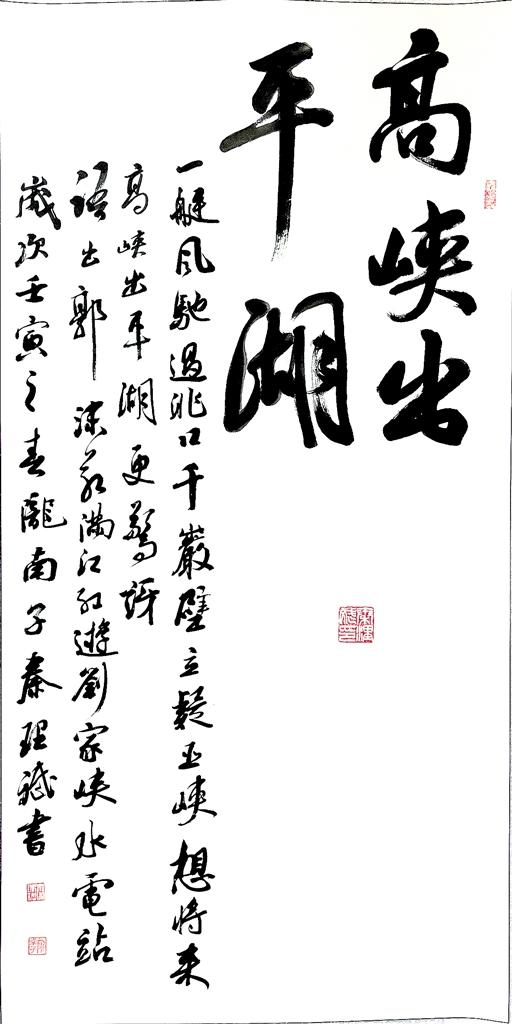 高峽出
平湖
一艇风馳過洮口千巖壁立疑巫峽想將来
高峽出平湖更驚訝
语出郭沫若满江红遊劉家峽水電站
歲次壬寅之春隴南子秦理斌書